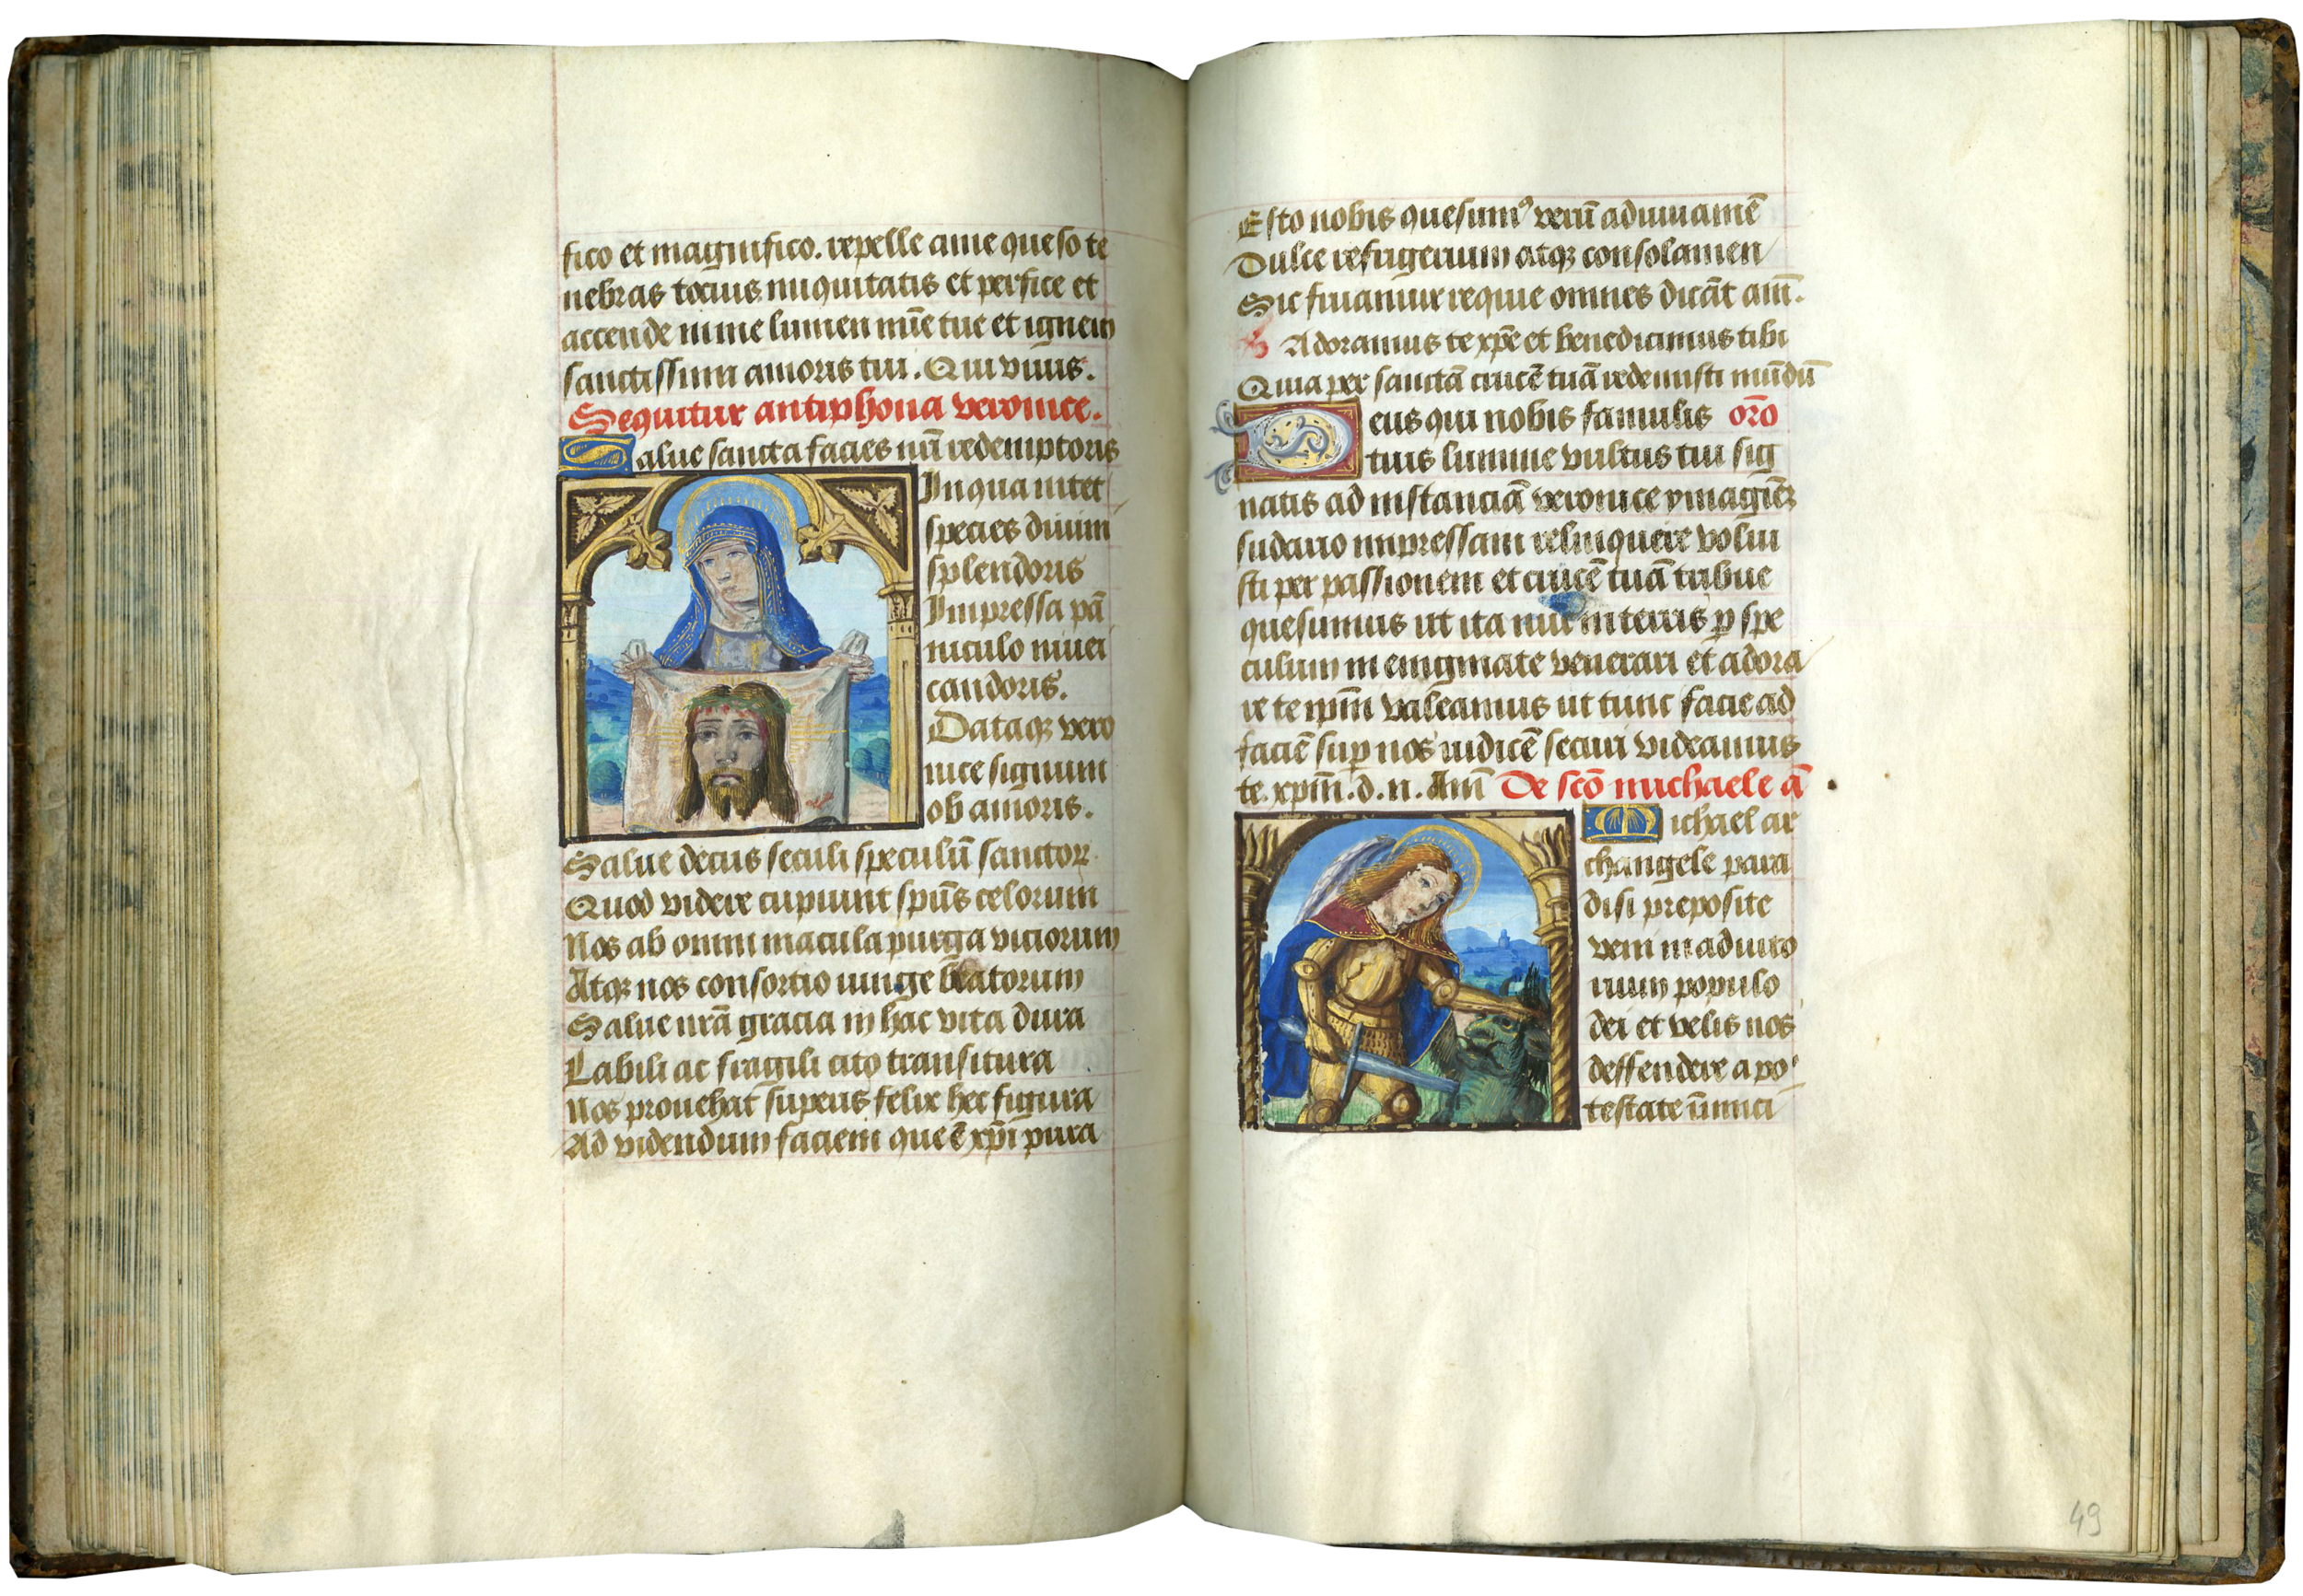 fico et magnifico. repelle a me queso te
nebras tocius iniquitatis et perfice et
accende in me lumen mīe tue et ignem
sanctissimi amoris tui. Qui viuis.
Sequitur antiphona veronice.
Salue sancta facies nr̄i redemptoris
In qua nitet
species diuini
splendoris
Impressa pā
niculo niuei
candoris.
Dataqꝫ vero
nice signum
ob amoris.
Salue decus seculi speculū sanctoꝝ
Quod videre cupiunt spūs celorum
Nos ab omni macula purga viciorum
Atqꝫ nos consorcio iunge beatorum
Salue nrā gracia in hac vita dura
Labili ac fragili cito transitura
Nos prouehat superis felix hec figura
Ad videndum faciem que ē xpī pura
Esto nobis quesumꝰ verū adiuuamē
Dulce refrigerium atqꝫ consolamen
Sic fruamur requie omnes dicāt amē.
Adoramus te xp̄e et benedicimus tibi
Quia per sanctā crucē tuā redemisti mūdū
Deus qui nobis famulis orō
tuis lumine vultus tui sig
natis ad instanciā veronice ymaginē
sudario impressam relinquere volui
sti per passionem et crucē tuā tribue
quesumus ut ita nūc in terris ꝑ spe
culum in enigmate venerari et adora
re te ipm̄ valeamus ut tunc facie ad
faciē suꝑ nos iudicē securi videamus
te. xpm̄. d. n. Amē De scō michaele ā
Michael ar
changele para
disi preposite
veni in adiuto
rium populo
dei et velis nos
deffendere a po
testate inimici
49